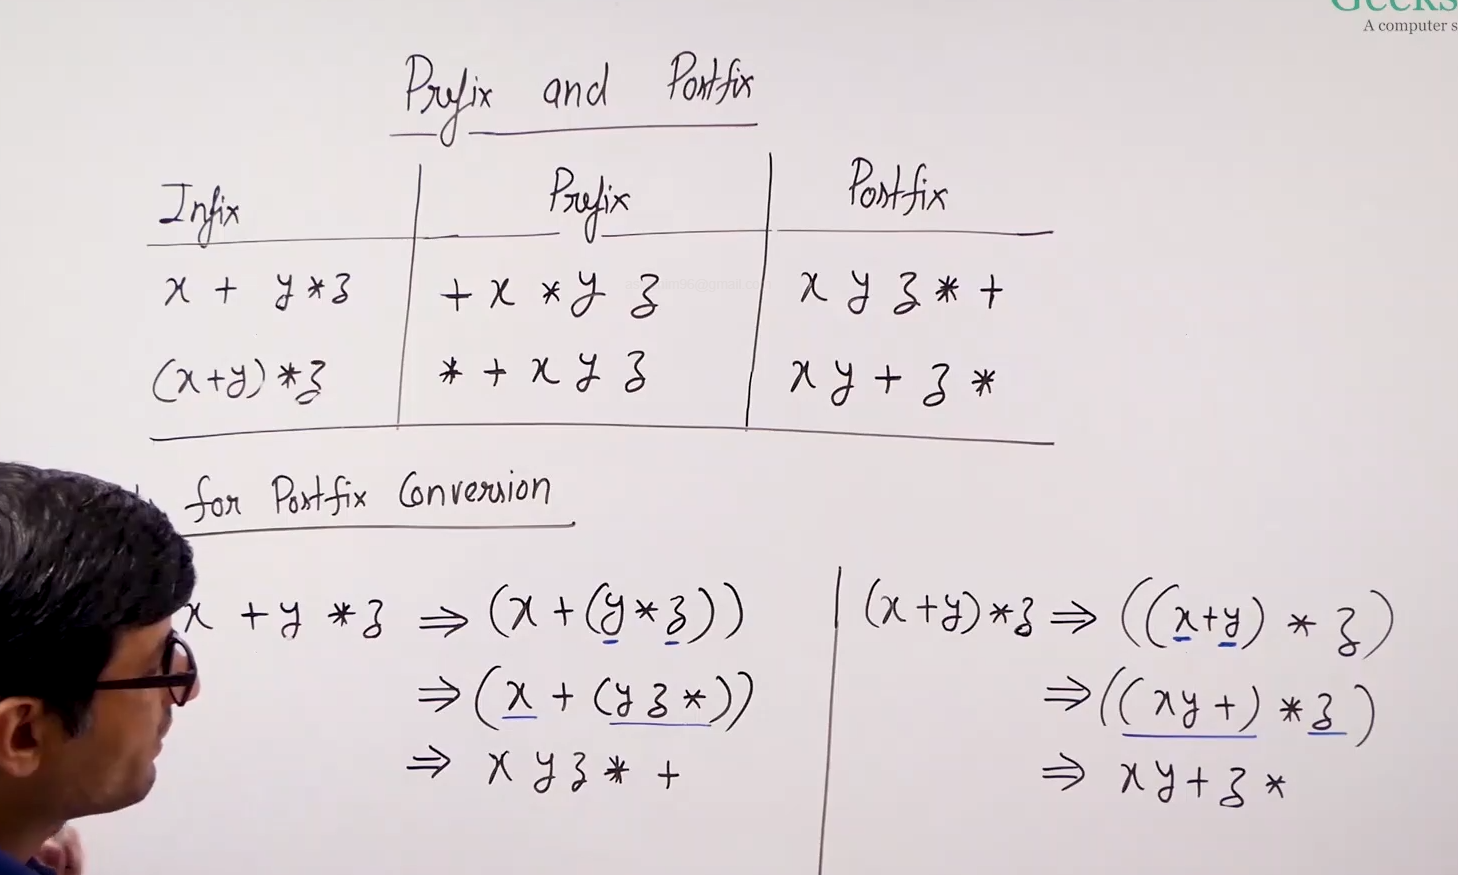 Geeks
A computer s
Prefix and Postfix
Infix Prefix Postfix
x + y * z + x * y z x y z * +
(x+y) * z * + x y z x y + z *
for Postfix Conversion
x + y * z ⇒ (x + (y * z))
⇒ (x + (y z *))
⇒ x y z * +
(x+y) * z ⇒ ((x+y) * z)
⇒ ((xy+) * z)
⇒ xy+z *